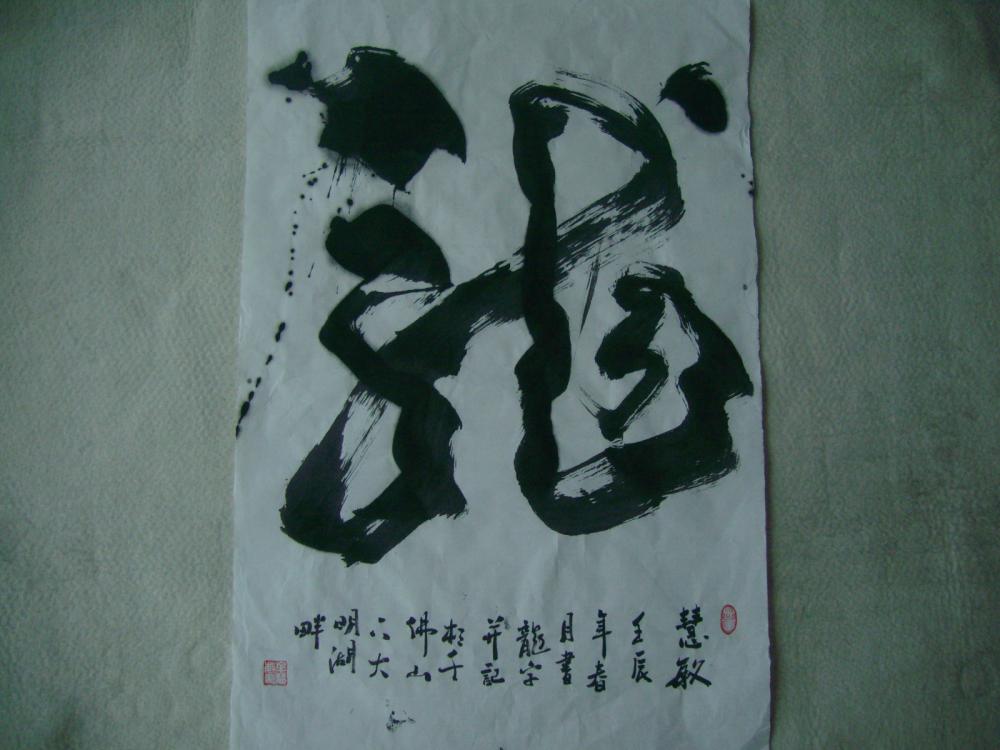 龍
慧敏
壬辰
年春
月書
龍字
并記
於千
佛山
下大
明湖
畔